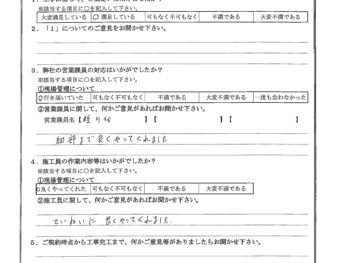 ※該当する項目に○を記入して下さい。
大変満足している ○ 満足している 可もなく不可もなく 不満である 大変不満である
2．「1」についてのご意見をお聞かせ下さい。
3．弊社の営業課員の対応はいかがでしたか？
※該当する項目に○を記入して下さい。
①現場管理について
○行き届いていた 可もなく不可もなく 不満である 大変不満である 一度も会わなかった
②営業課員に関して、何かご意見があればお聞かせ下さい。
営業課員名【 】【 】【 】
細部まで良くやってくれました
4．施工員の作業内容等はいかがでしたか？
※該当する項目に○を記入して下さい。
①現場管理について
○良くやってくれた 可もなく不可もなく 不満である 大変不満である
②施工員に関して、何かご意見があればお聞かせ下さい。
ていねいに良くやってくれました.
5．ご契約時点から工事完工まで、何かご意見等がありましたらお聞かせ下さい。